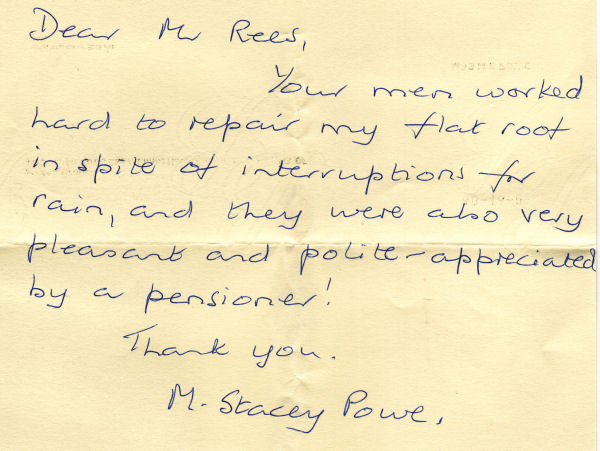 Dear Mr Rees,
Your men worked
hard to repair my flat roof
in spite of interruptions for
rain, and they were also very
pleasant and polite - appreciated
by a pensioner!
Thank you.
M. Stacey Powe.